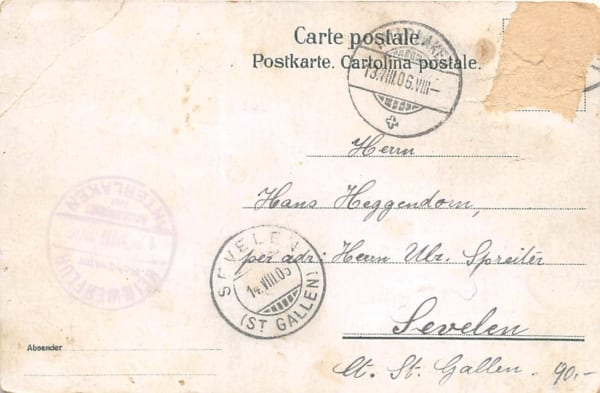 Carte postale.
Postkarte. Cartolina postale.
13.VIII.06.VIII-
Herrn
Hans Heggendorn,
per adr: Herrn Ulr. Spreiter
Sevelen
Ct. St. Gallen. 90.-
SEVELEN
14.VIII.06
(ST. GALLEN)
INTERLAKEN
HEIMWEHFLUH
Absender